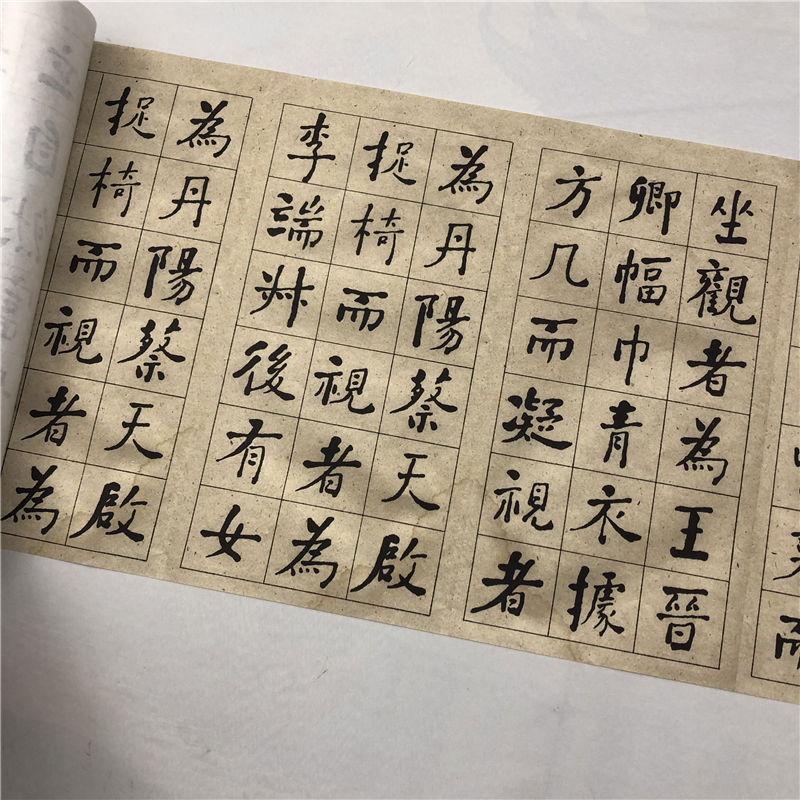 坐觀者為王晉
卿幅巾青衣據
方几而凝視者
為丹陽蔡天啟
捉椅而視者為
李端叔後有女
為丹陽蔡天啟
捉椅而視者為